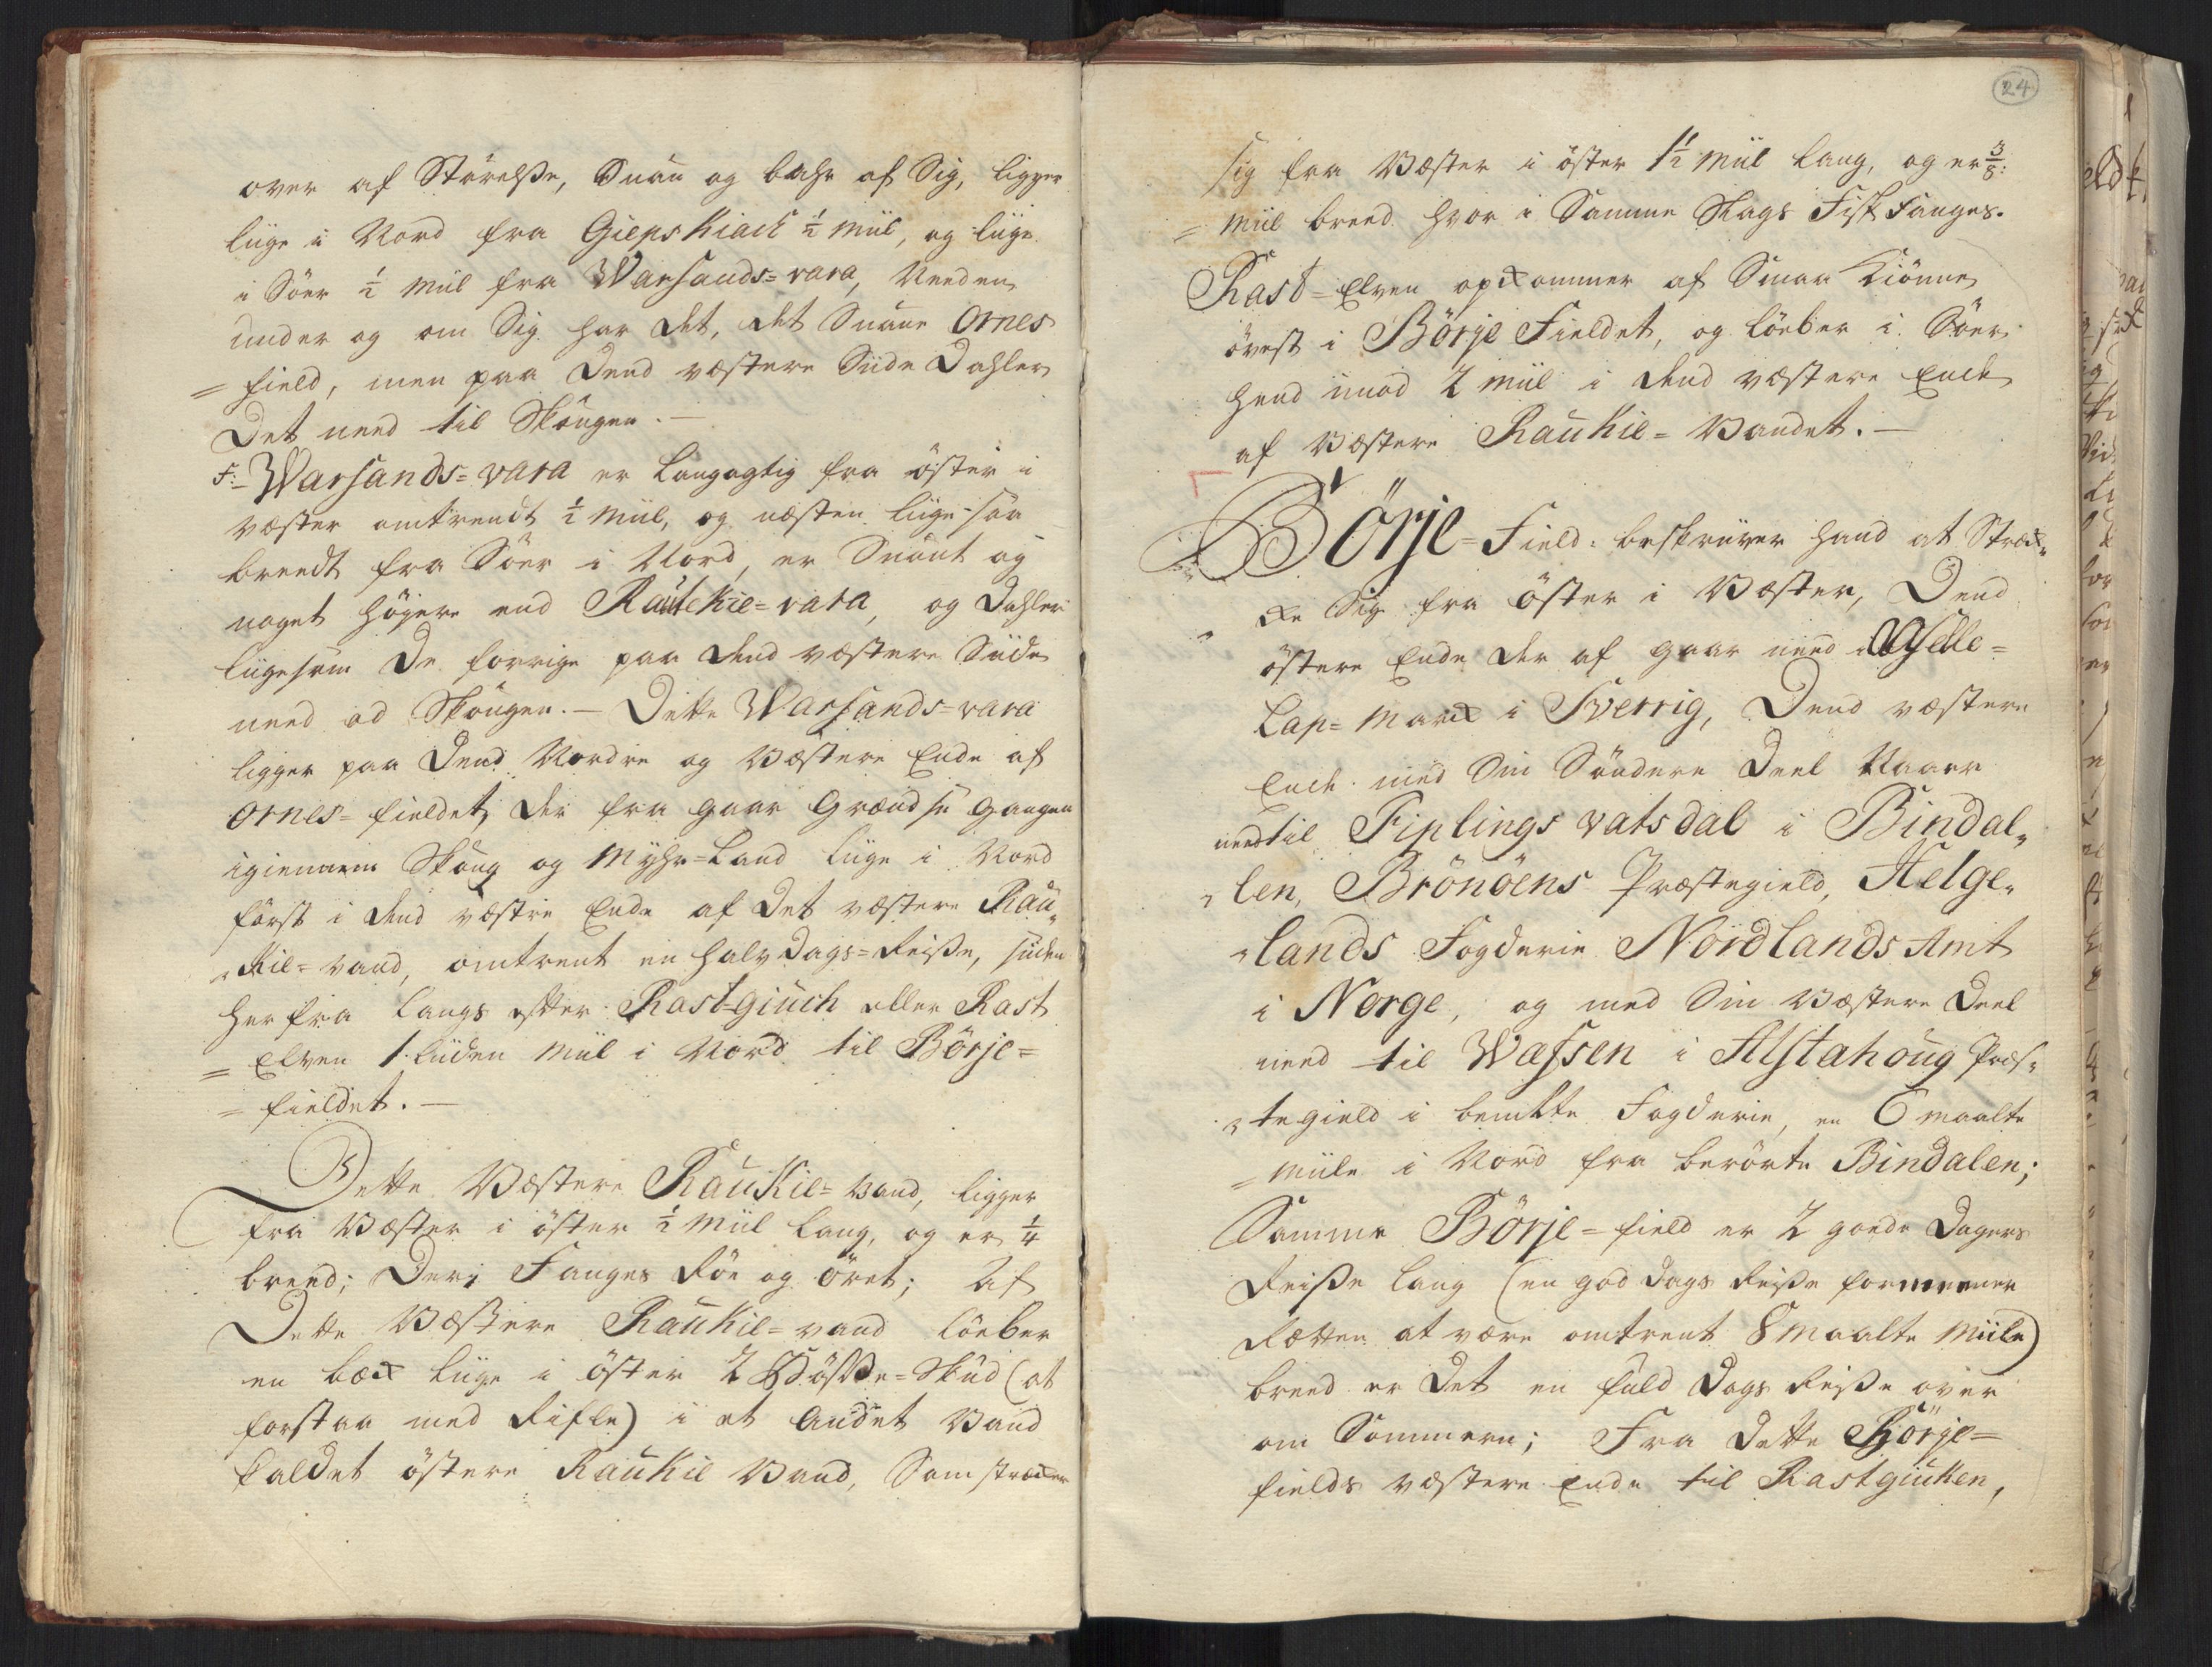 over af Störelße, Snau og bahr af Sig, ligger
liige i Nord fra Giepskiach ½ Miil, og liige
i Söer ½ Miil fra Warsands=vara, Needen
under og om Sig har det, det Snaue Ornes
= field, men paa Dend væstere Siide Dahler
Det need til Skougen.—
F:– Warsands=vara er Langagtig fra öster i
væster omtrendt ½ Miil, og næsten liige saa
breedt fra Söer i Nord, er Snaut og
noget högere end Rautekie=vara, og Dahler
liigesom De forrige paa dend væstere Siide
need ad Skougen.— Dette Warsands=vara
ligger paa Dend Nordre og Væstere Ende af
Ornes=fieldet, der fra gaar Grændse Gangen
igiennem Skoug og Myhr=Land liige i Nord
först i dend væstre Ende af Det væstere Rau„
„kie=vand, omtrent en halv Dags=Reiße, siiden
her fra langs efter Rast=giuch eller Rast
= Elven 1 liiden Miil i Nord til Börje=
= fieldet.—
Dette Væstere Raukie=vand, ligger
fra Væster i öster ½ Miil lang, og er ¼
breed; Deri Fanges Röe og öret; Af
Dette Væstere Raukie=vand löeber
en bæck liige i öster 2 Bösse=Skud (at
forstaa med Rifle) i et Andet Vand
kaldet östere Raukie Vand, Som strecker
24
sig fra Væster i öster 1½ Miil lang, og er 3/8:
= Miil breed hvor i Samme Slags Fisk Fanges.
Rast=Elven opkommer af Smaa Kiönne
överst i Börje Fieldet, og löeber i Söer
hend imod 2 Miil i dend væstere Ende
af Væstere Raukie=Vandet.—
Börje=Field: beskriver hand at Stræc„
„ke Sig fra öster i Væster, Dend
östere Ende der af gaar need i Aselle=
Lap=Marck i Sverrig, Dend væstere
Ende med Sin Söndere Deel Naaer
need til Fiplings vatsdal i Bindal„
„len, Brönöens Præstegield, Helge„
„lands Fogderie Nordlands Amt
i Norge, og med Sin Væstere Deel
need til Wefsen i Alstahoug Præs„
„tegield i bemelte Fogderie, en 6 maalte
= Miile i Nord fra berörte Bindalen;
Samme Börje=field er 2 goede Dagers
Reiße lang (en god Dags Reiße formeener
Rætten at være omtrent 8 maalte Miile)
breed er Det en fuld Dags Reiße over
om Sommeren; Fra Dette Börje=
fields væstere Ende til Rastgiuken,